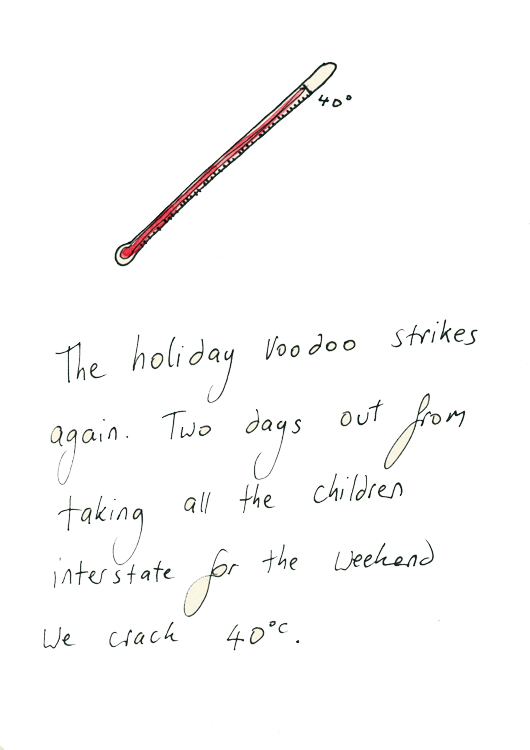 40°
The holiday Voodoo strikes
again. Two days out from
taking all the children
interstate for the weekend
We crack 40°c.